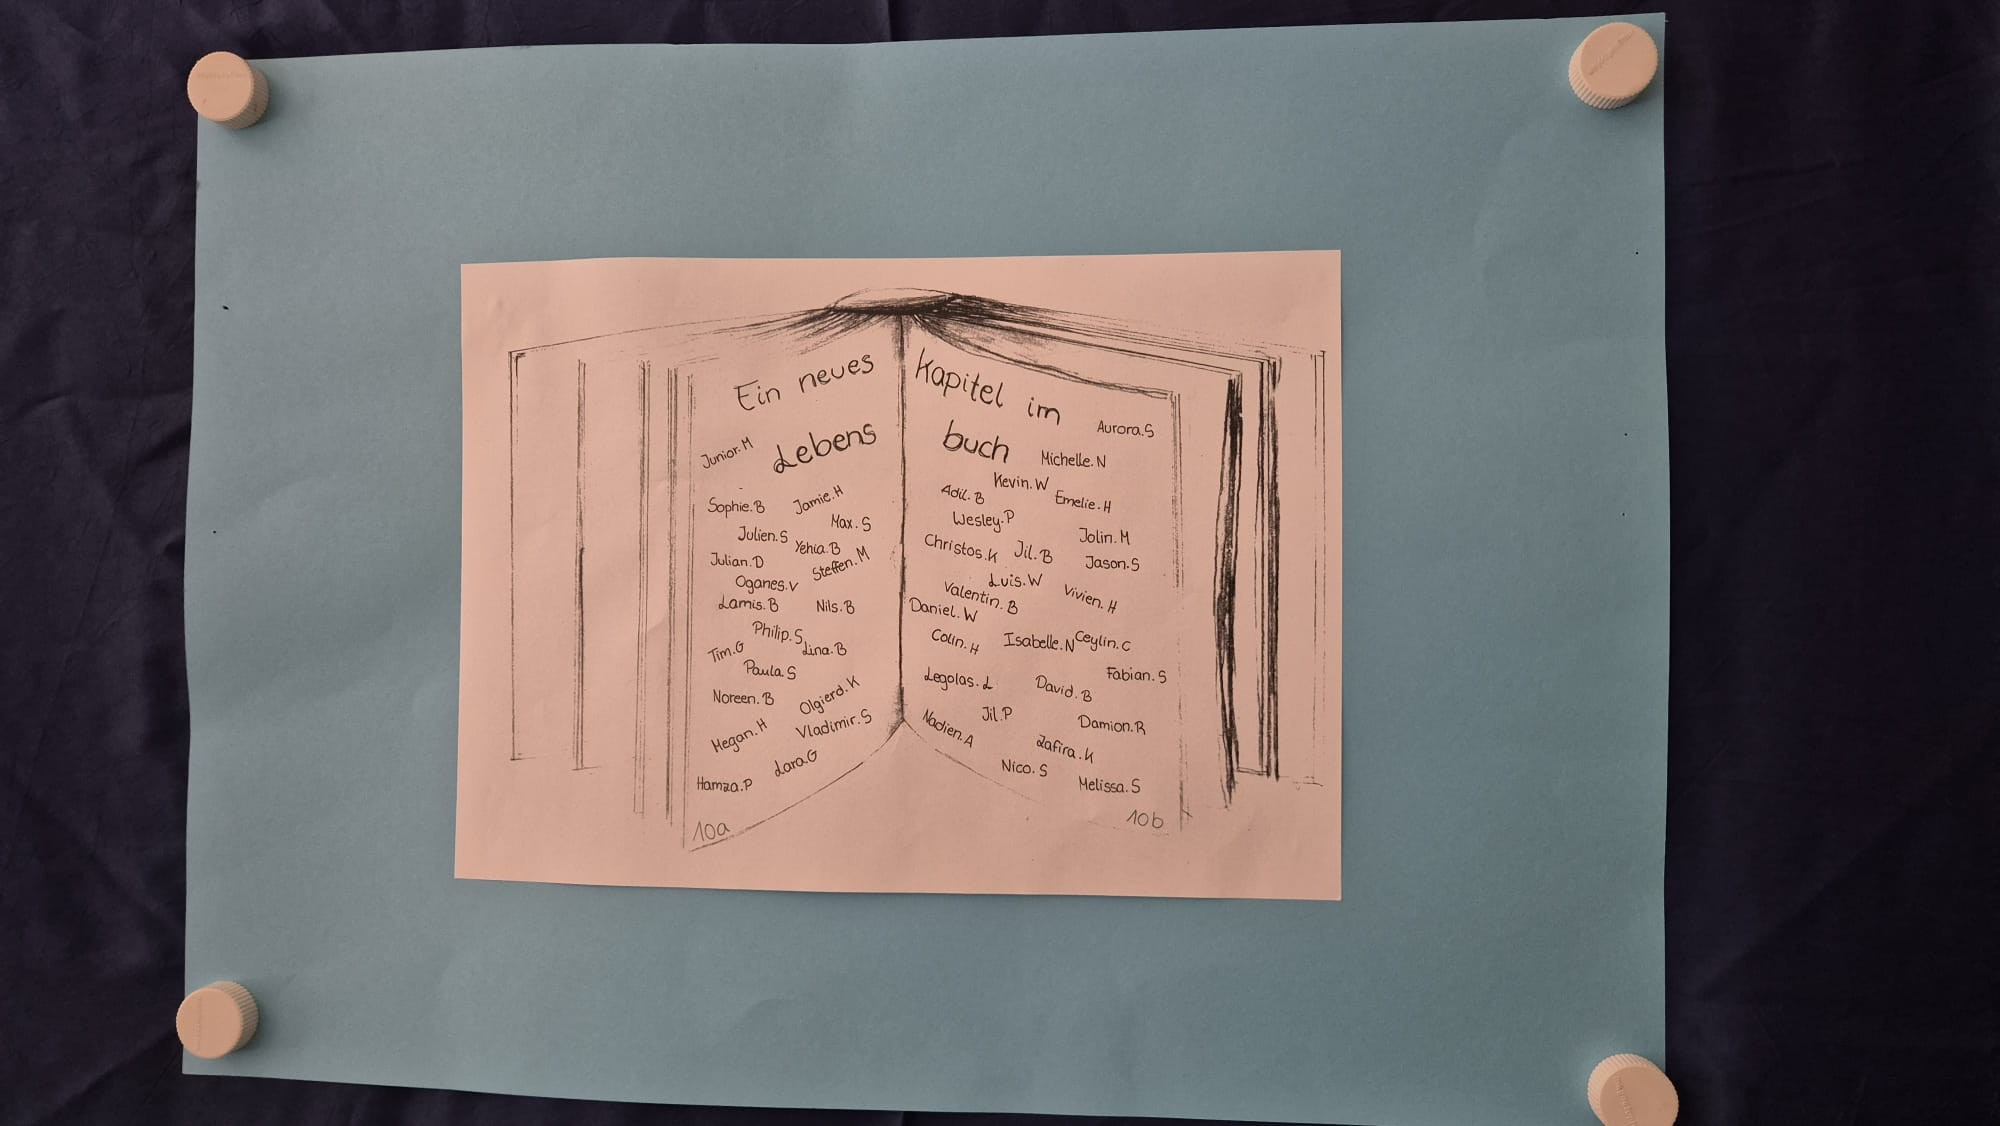 Ein neues
Lebens
Junior.M
Sophie.B
Jamie.H
Max.S
Julien.S
Yehia.B
Julian.D
Steffen.M
Oganes.v
Lamis.B
Nils.B
Philip.S
Tim.G
Lina.B
Paula.S
Noreen.B
Olgierd.K
Megan.H
Vladimir.S
Lara.G
Hamza.P
10a
Kapitel im
buch
Aurora.S
Michelle.N
Kevin.W
Adil.B
Emelie.H
Wesley.P
Jolin.M
Christos.K
Jil.B
Jason.S
Luis.W
Valentin.B
Vivien.H
Daniel.W
Colin.H
Isabelle.N
Ceylin.C
Fabian.S
Legolas.L
David.B
Jil.P
Damion.R
Nadien.A
Zafira.K
Nico.S
Melissa.S
10b